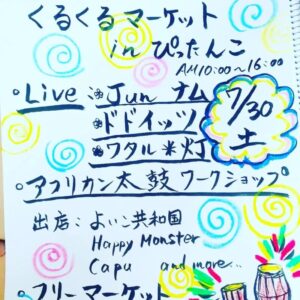 くるくるマーケット
in ぴったんこ
AM10:00～16:00
7/30
土
・Live ※Jun ナム
※ドドイッツ
※ワタル＊灯
・アフリカン太鼓ワークショップ
出店：よいこ共和国
Happy Monster
Capu and more...
・フリーマーケット